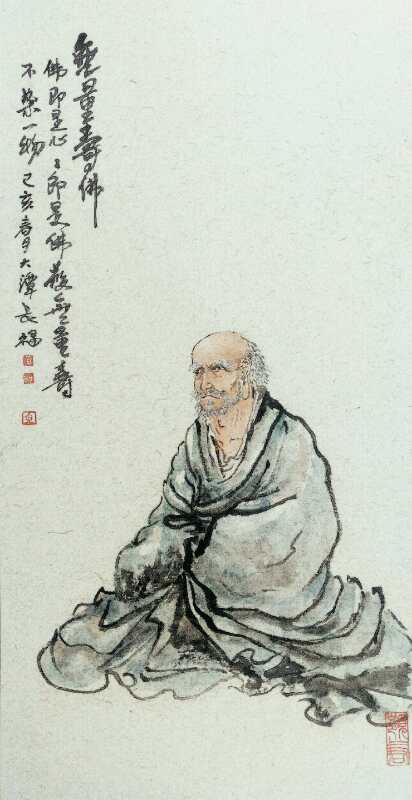 無量壽佛
佛即是心々即是佛無量壽
不染一物己亥春月大潭長